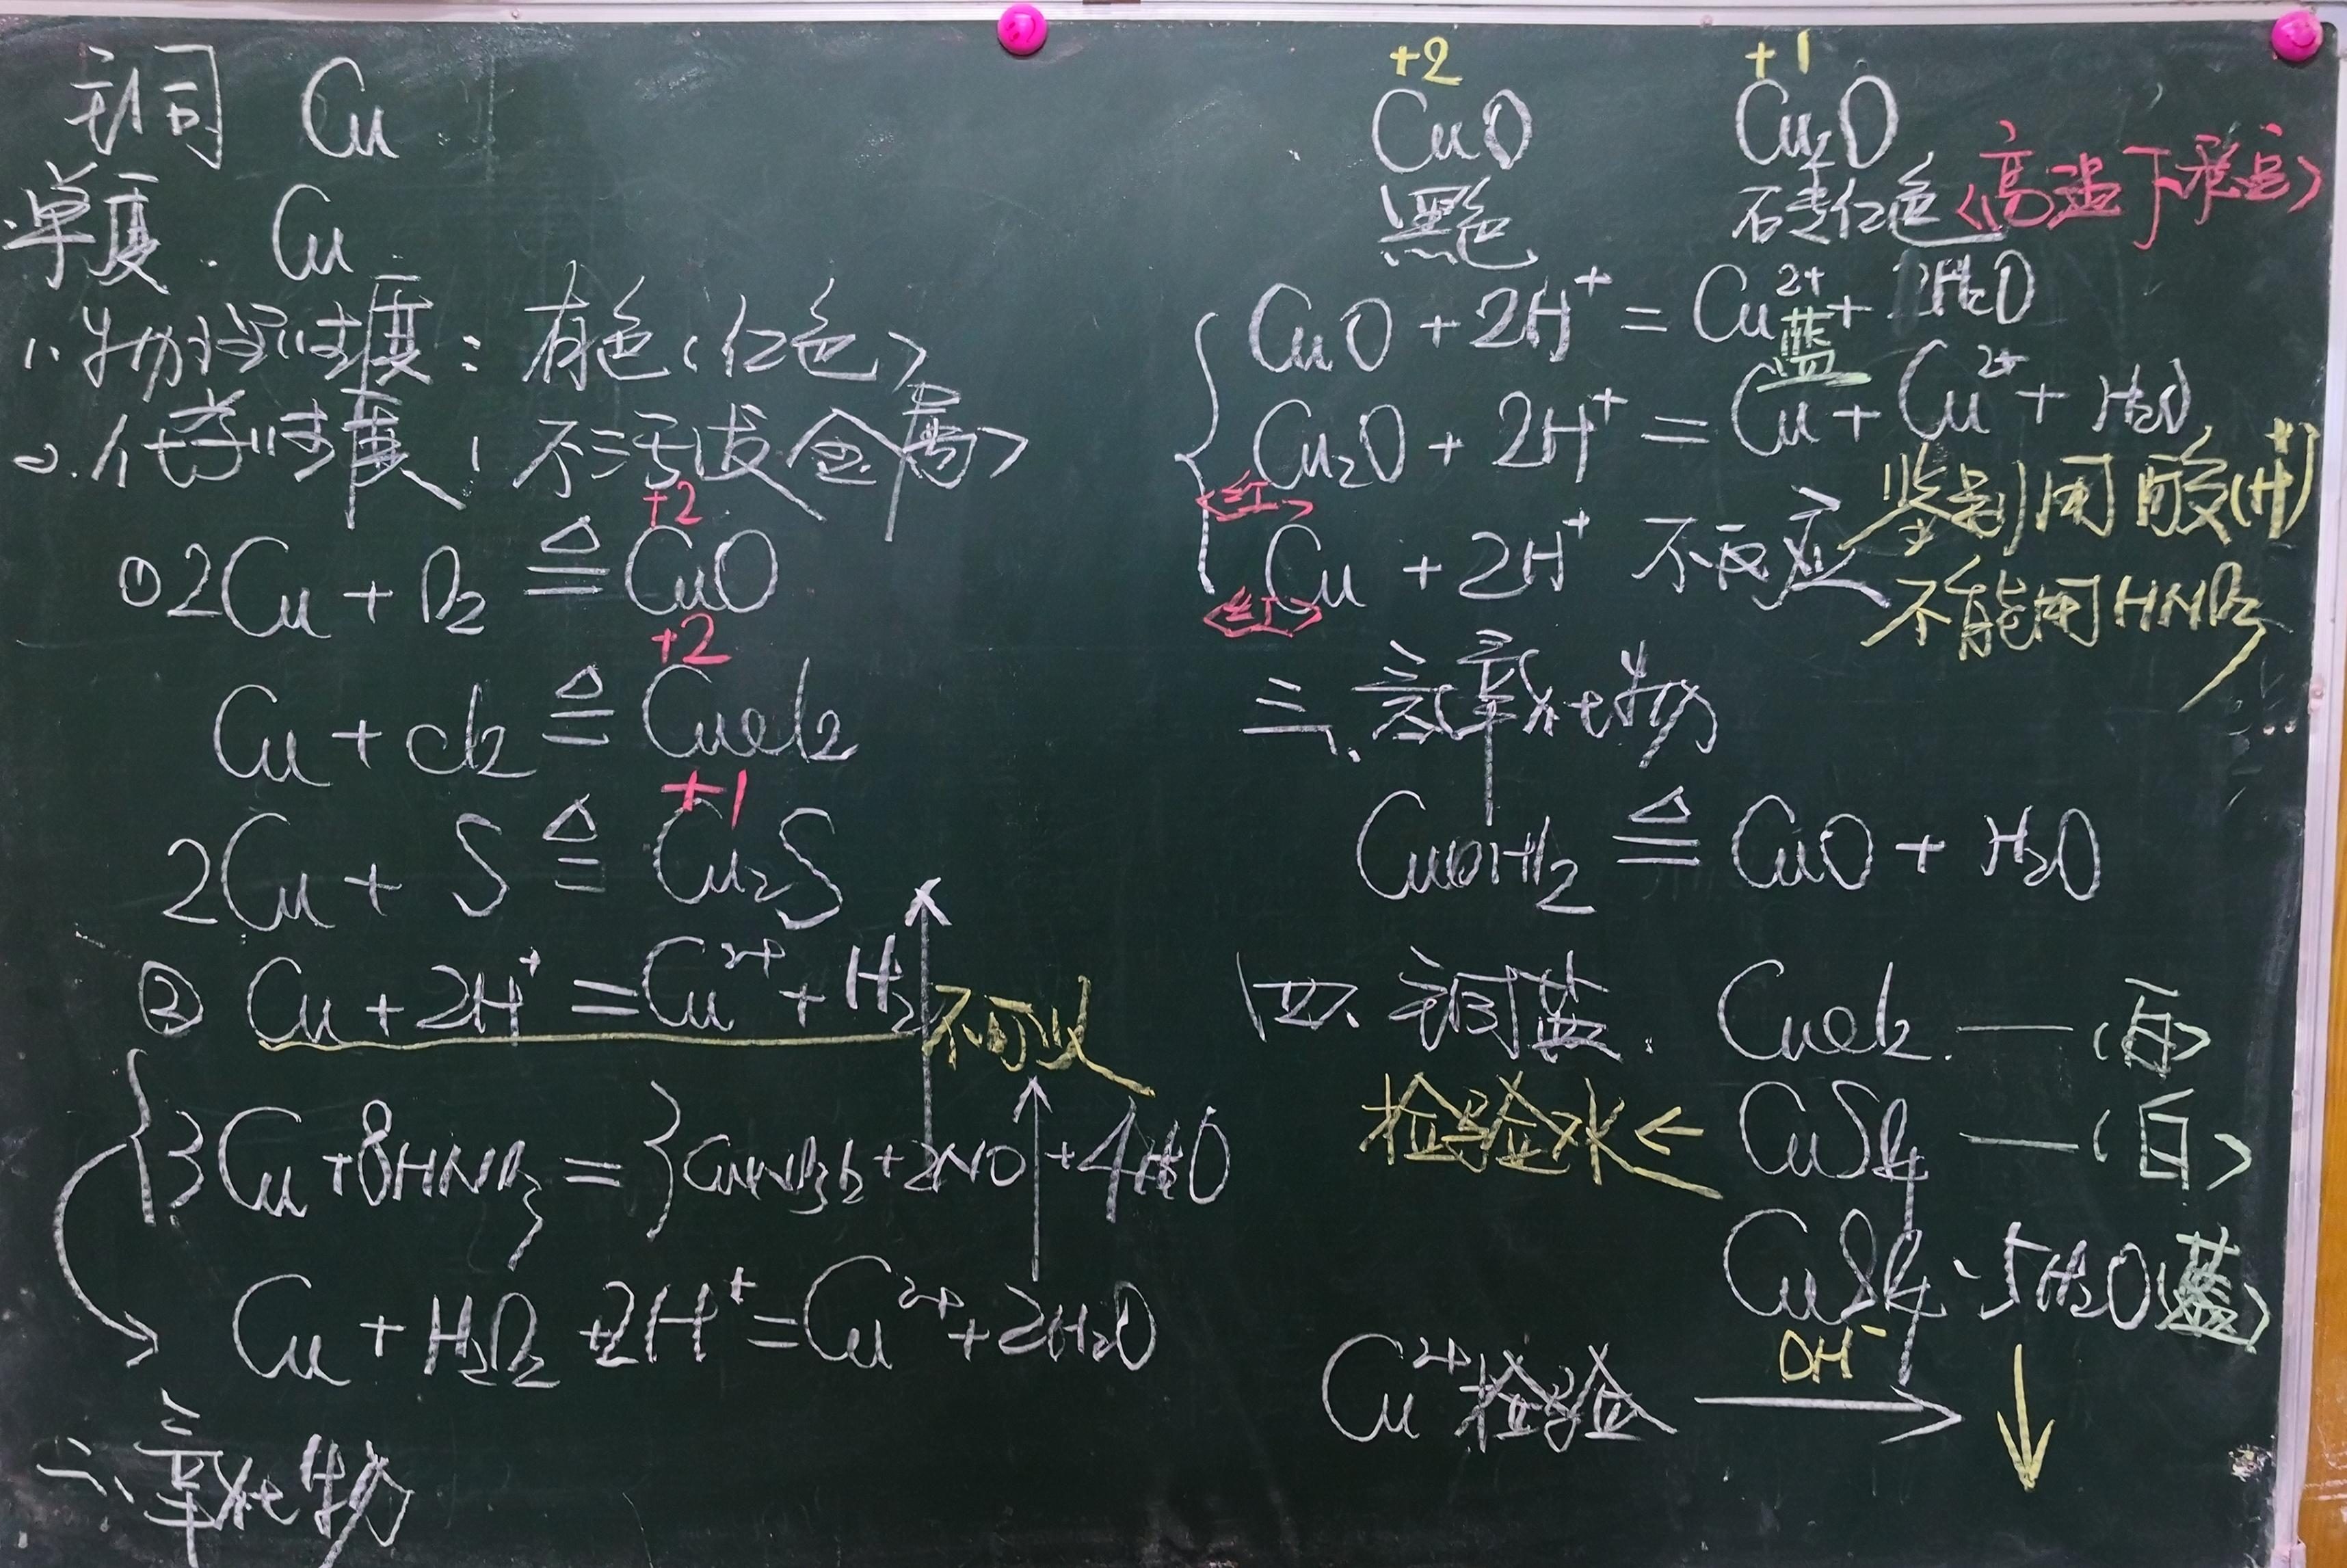 铜 Cu
单质. Cu
1. 物理性质: 有色(红色)
2. 化学性质(不活泼金属)
+2
①2Cu + O₂ ≜ CuO
+2
Cu + Cl₂ ≜ CuCl₂
+1
2Cu + S ≜ Cu₂S
② Cu + 2H⁺ = Cu²⁺ + H₂↑ 不可以
3Cu + 8HNO₃ = 3Cu(NO₃)₂ + 2NO↑ + 4H₂O
Cu + H₂O₂ + 2H⁺ = Cu²⁺ + 2H₂O
二、氧化物
+2 +1
CuO Cu₂O
黑色 砖红色 (高温下稳定)
CuO + 2H⁺ = Cu²⁺ + 2H₂O
蓝
Cu₂O + 2H⁺ = Cu + Cu²⁺ + H₂O
(红)
鉴别用酸(H⁺)
Cu + 2H⁺ 不反应
(红)
不能用HNO₃
三、氢氧化物
Cu(OH)₂ ≜ CuO + H₂O
四、铜盐. CuCl₂. —
检验水 ← CuSO₄ — (白)
CuSO₄·5H₂O(蓝)
Cu²⁺检验 OH⁻ → ↓